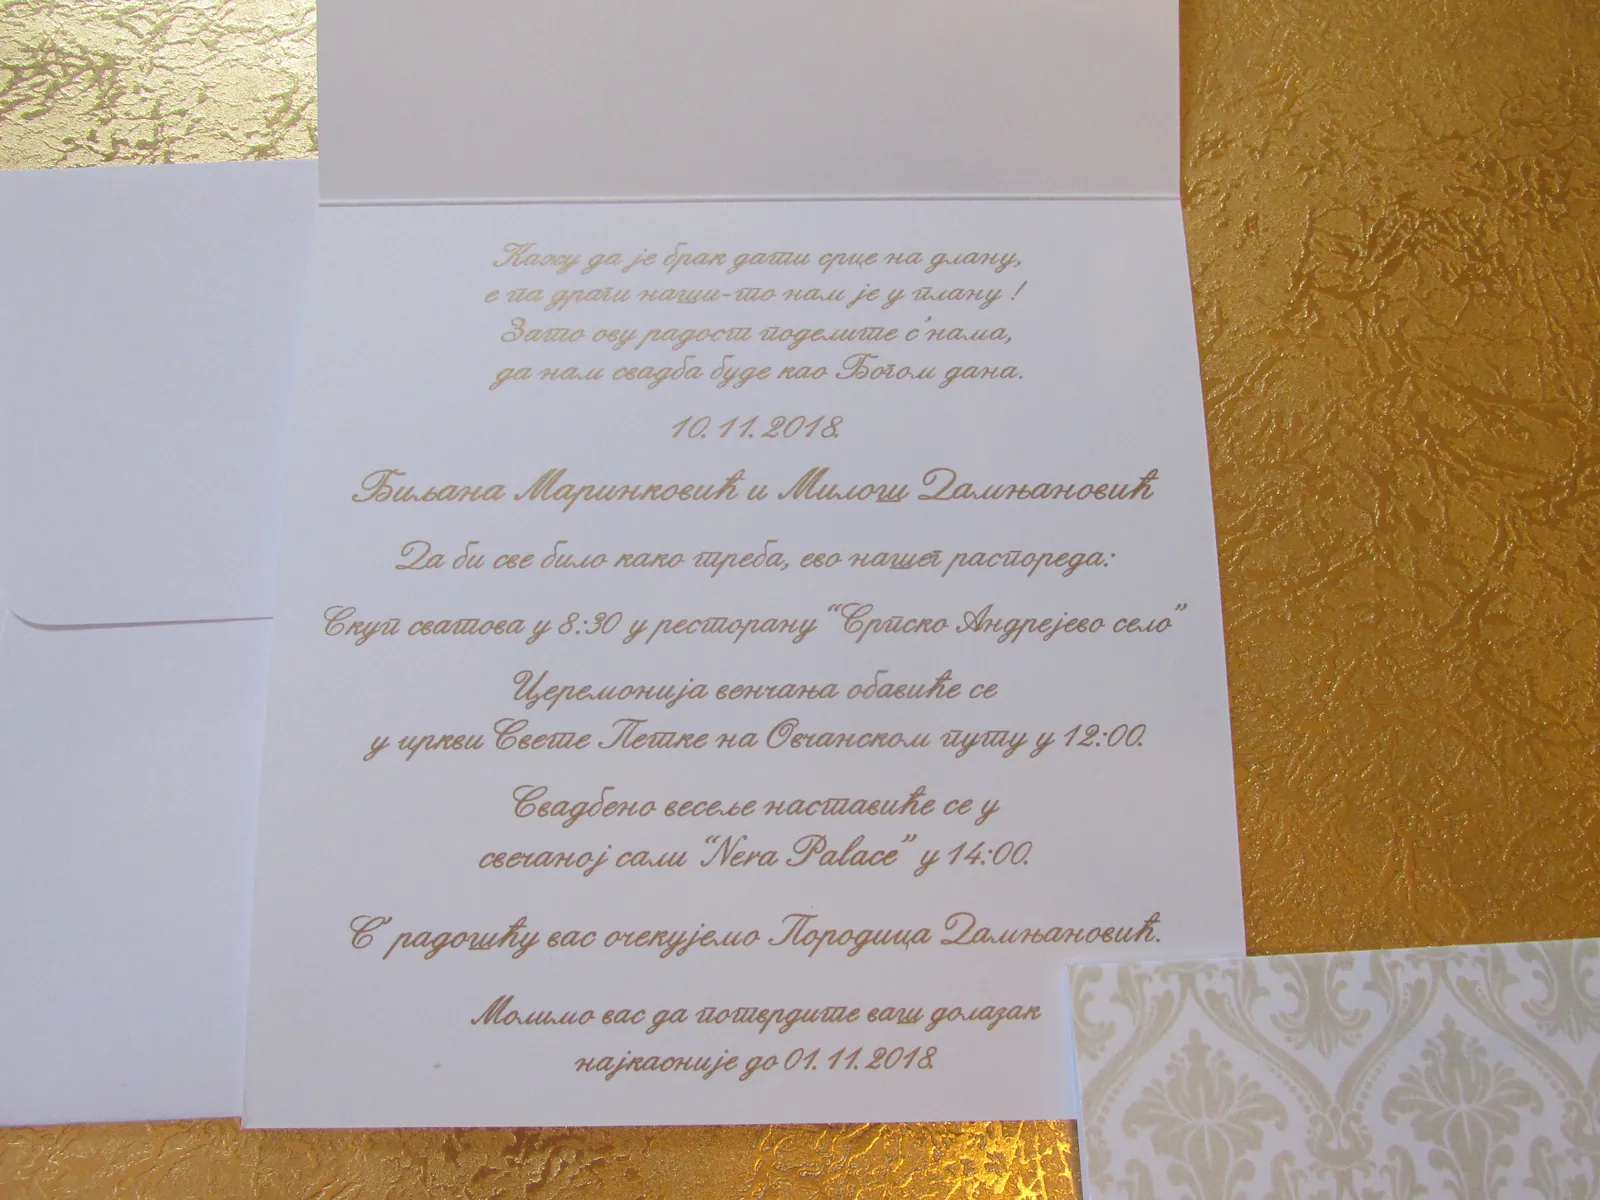 Кажу да је брак дати срце на длану,
е па драги наши-то нам је у плану !
Зато ову радост поделите с'нама,
да нам свадба буде као Богом дана.
10. 11. 2018.
Биљана Маринковић и Милош Дамњановић
Да би све било како треба, ево нашег распореда:
Скуп сватова у 8:30 у ресторану “Српско Андрејево село”
Церемонија венчања обавиће се
у цркви Свете Петке на Овчанском путу у 12:00.
Свадбено весеље наставиће се у
свечаној сали “Nera Palace” у 14:00.
С' радошћу вас очекујемо Породица Дамњановић.
Молимо вас да потврдите ваш долазак
најкасније до 01. 11. 2018.